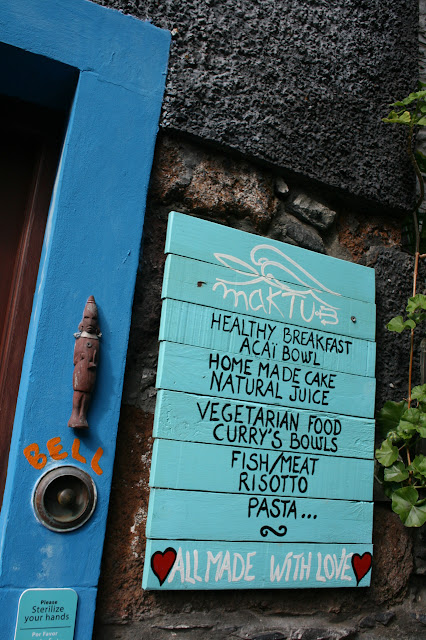 maKTUB
HEALTHY BREAKFAST
ACAÏ BOWL
HOME MADE CAKE
NATURAL JUICE
VEGETARIAN FOOD
CURRY'S BOWLS
FISH/MEAT
RISOTTO
PASTA...
ALL MADE WITH LOVE
BELL
Please
Sterilize
your hands.
Por Favor